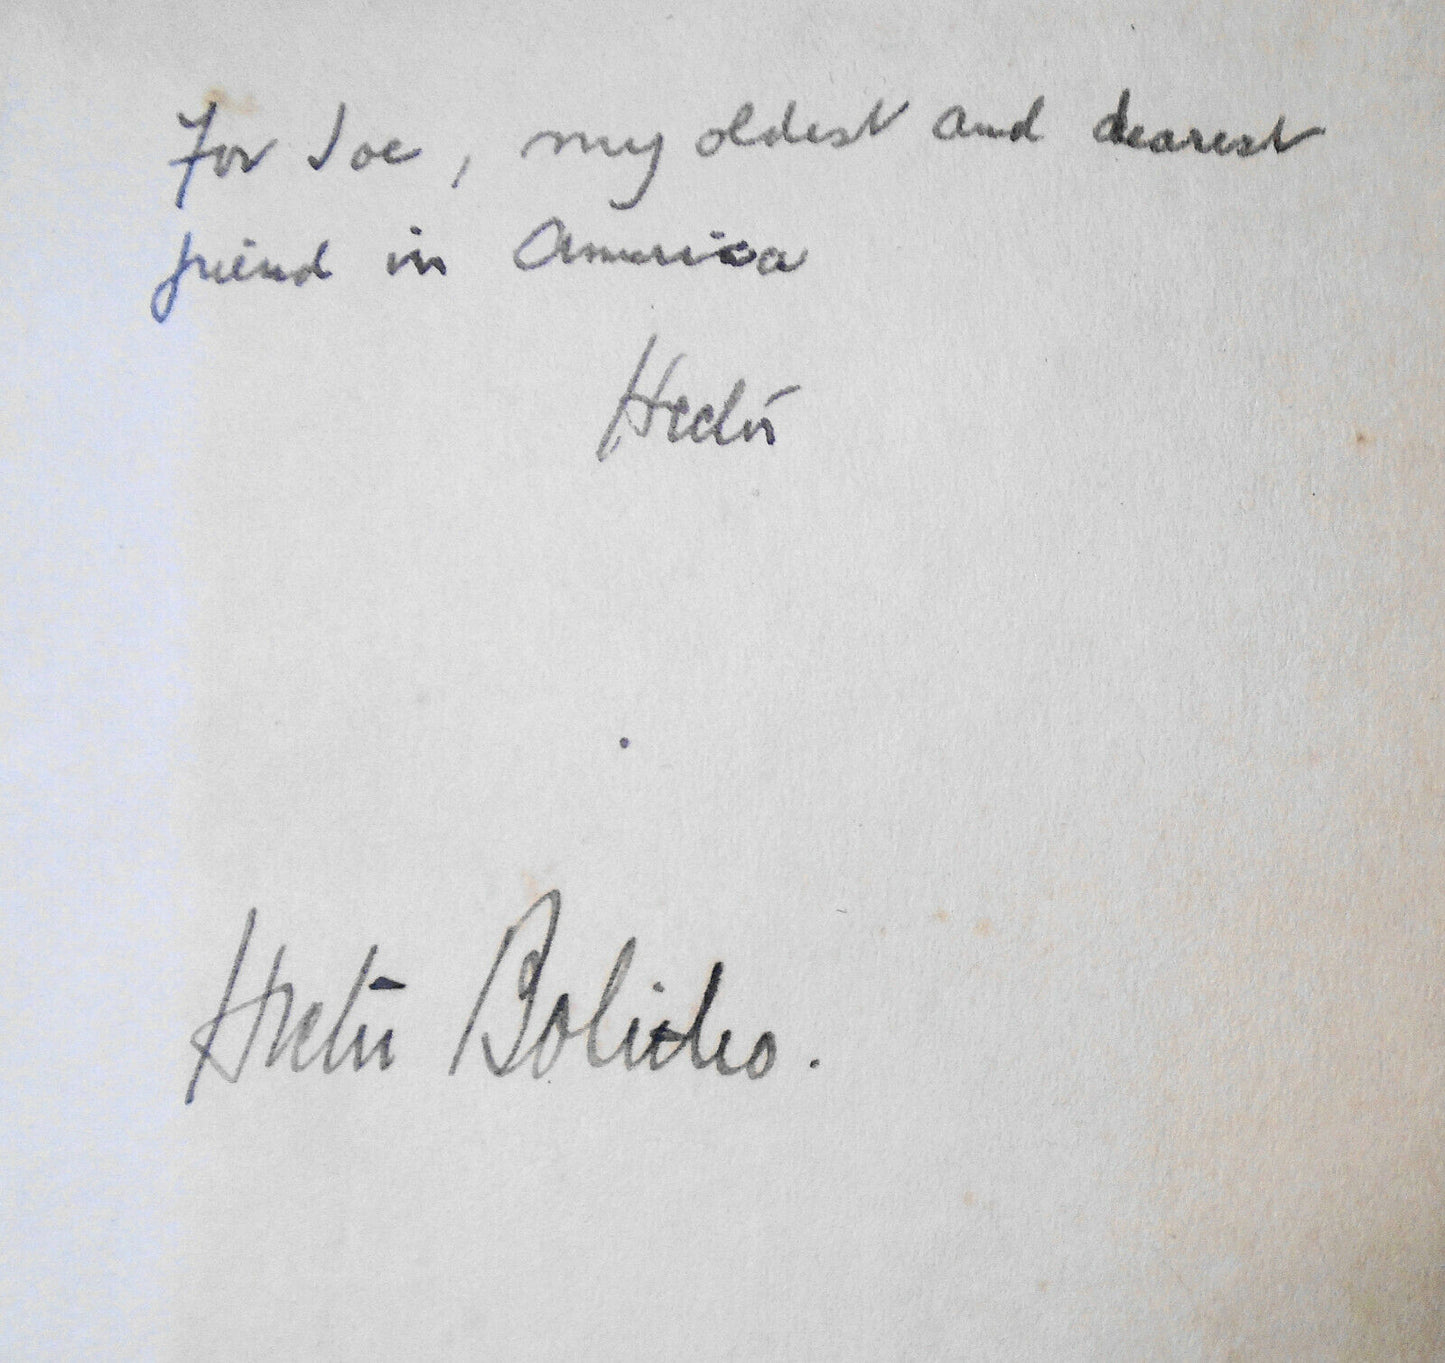 For Joe, my oldest and dearest
friend in America
Hector
Hector Bolitho.